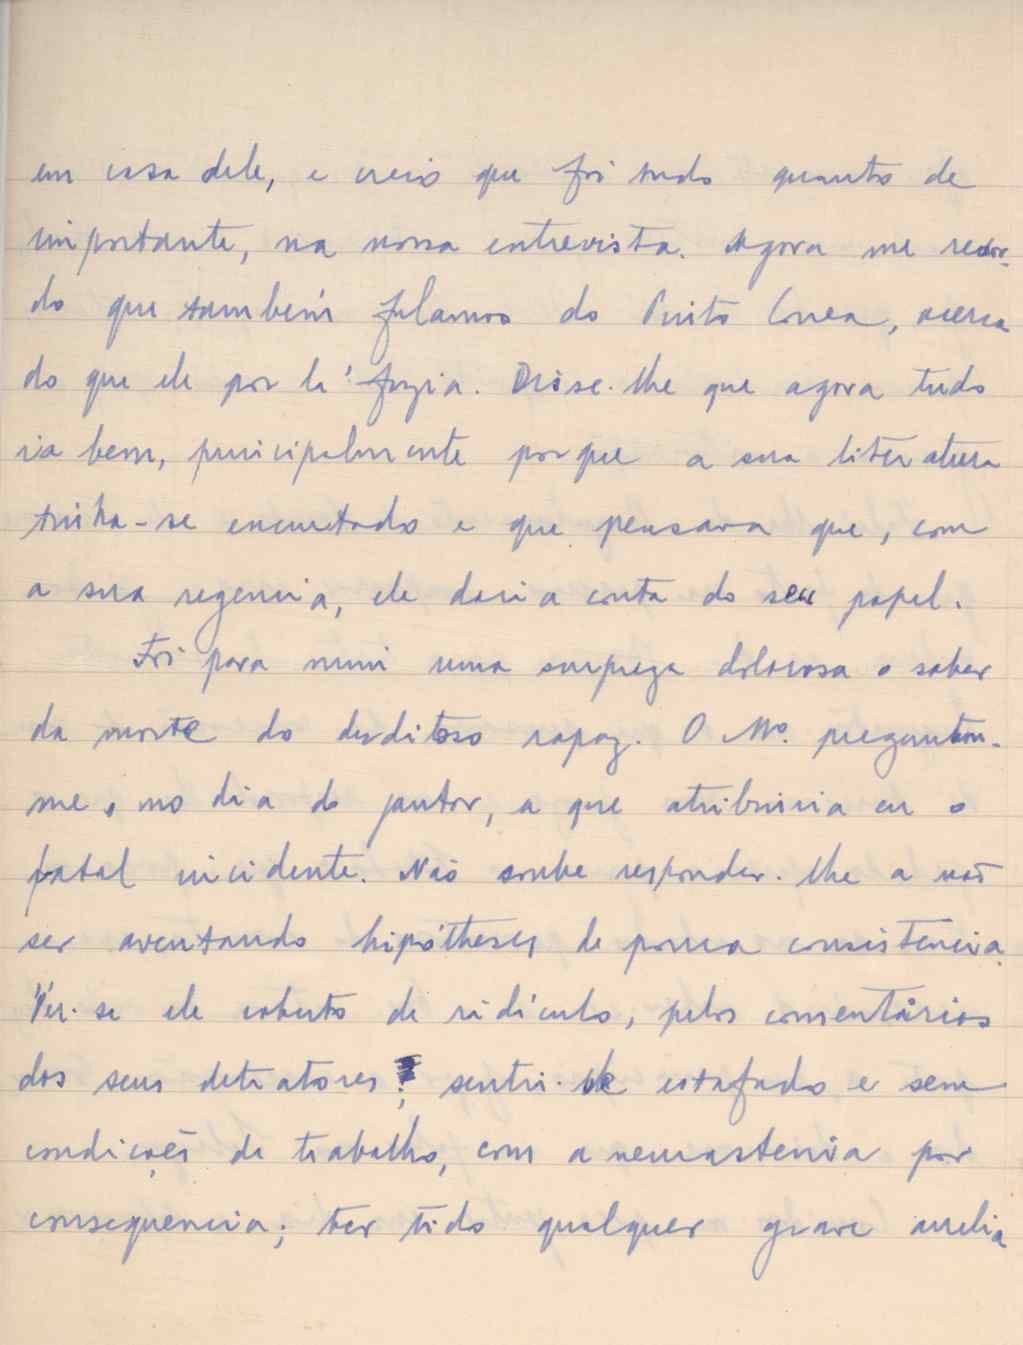 em casa dele, e creio que foi tudo quanto de
importante, na nossa entrevista. Agora me recor-
do que também falamos do Pinto Correa, acerca
do que ele por lá fazia. Disse-lhe que agora tudo
ia bem, principalmente porque a sua literatura
tinha-se encurtado e que pensava que, com
a sua regencia, ele daria conta do seu papel.
Foi para mim uma surpreza dolorosa o saber
da morte do desditoso rapaz. O Mo. preguntou-
me, no dia do jantar, a que atribuiria eu o
fatal incidente. Não soube responder-lhe a não
ser aventando hipótheses de pouca consistencia.
Ver-se ele coberto de ridículo, pelos comentários
dos seus detratores; sentir-se estafado e sem
condições de trabalho, com a neurastenia por
consequencia; ter tido qualquer grave